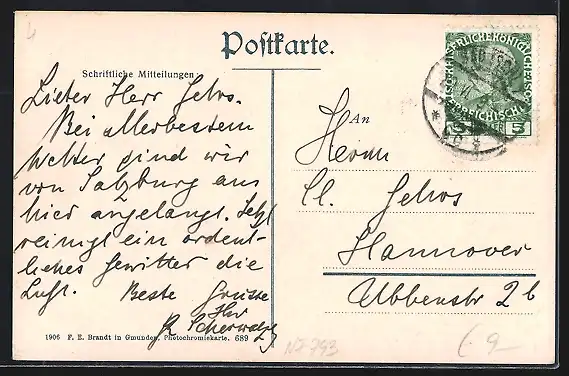 Postkarte.
Schriftliche Mitteilungen
Lieber Herr Gehrs.
Bei allerbestem
Wetter sind wir
von Salzburg aus
hier angelangt. Jetzt
reinigt ein ordent-
liches Gewitter die
Luft. Beste Grüsse
Ihr
An
Herrn
Cl. Gehrs
Hannover
Ubbenstr 2b
5 5
1906 F. E. Brandt in Gmunden, Photochromiekarte. 689
N7793